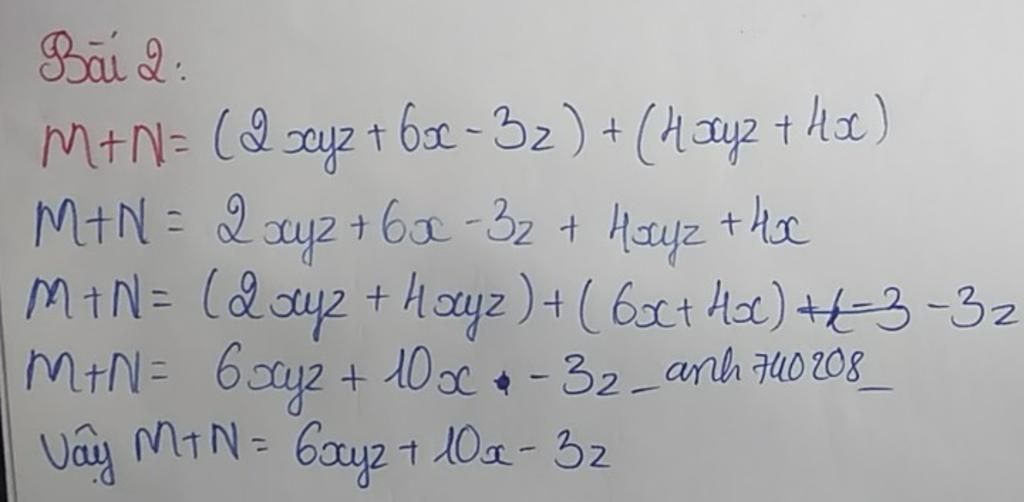 Bài 2:
M+N= (2xyz+6x-3z)+(4xyz+4x)
M+N= 2xyz+6x-3z+4xyz+4x
M+N= (2xyz+4xyz)+(6x+4x)+(-3 -3z
M+N= 6xyz+10x -3z _anh740208_
Vậy M+N= 6xyz+10x-3z